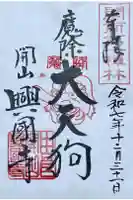 奉拝
令和七年十二月三十一日
魔除
大天狗
開山
興國寺